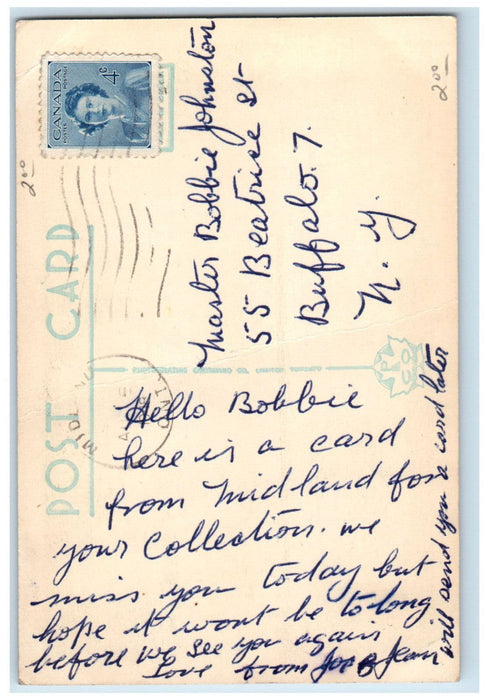 CANADA
POSTES POSTAGE
4¢
2 00
2 00
POST CARD
Master Bobbie Johnston
55 Beatrice St
Buffalo. 7.
N. Y.
MIDL
ONT
Hello Bobbie
here is a card
from Midland for
your Collection. we
miss you today but
hope it wont be to long
before we see you again
Love from Joe & Jean
will send you a card later